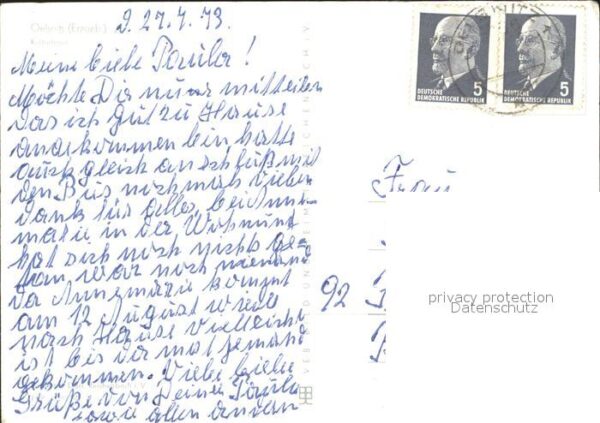 Oelsnitz (Erzgeb.)
d. 27.7.73.
Meine liebe Paula!
Möchte Dir nur mitteilen
das ich gut zu Hause
angekommen bin hatte
auch gleich anschluß mit
den Bus noch mals vielen
dank für alles, bei Anne-
marie in der Wohnung
hat sich noch nichts ge-
tan, war noch niemand
da Annemarie kommt
am 12 August wieder
nach Hause vielleicht
ist bis da mal jemand
gekommen. Viele liebe
Grüße von Deiner Paula
sowie allen andern
Frau
92
DEUTSCHE
DEMOKRATISCHE REPUBLIK
5
DEUTSCHE
DEMOKRATISCHE REPUBLIK
5
privacy protection
Datenschutz